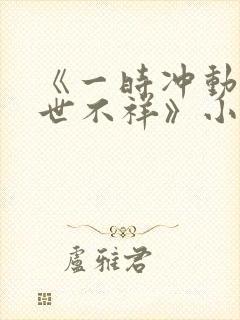 《一时冲动
世不祥》小
盧雅君